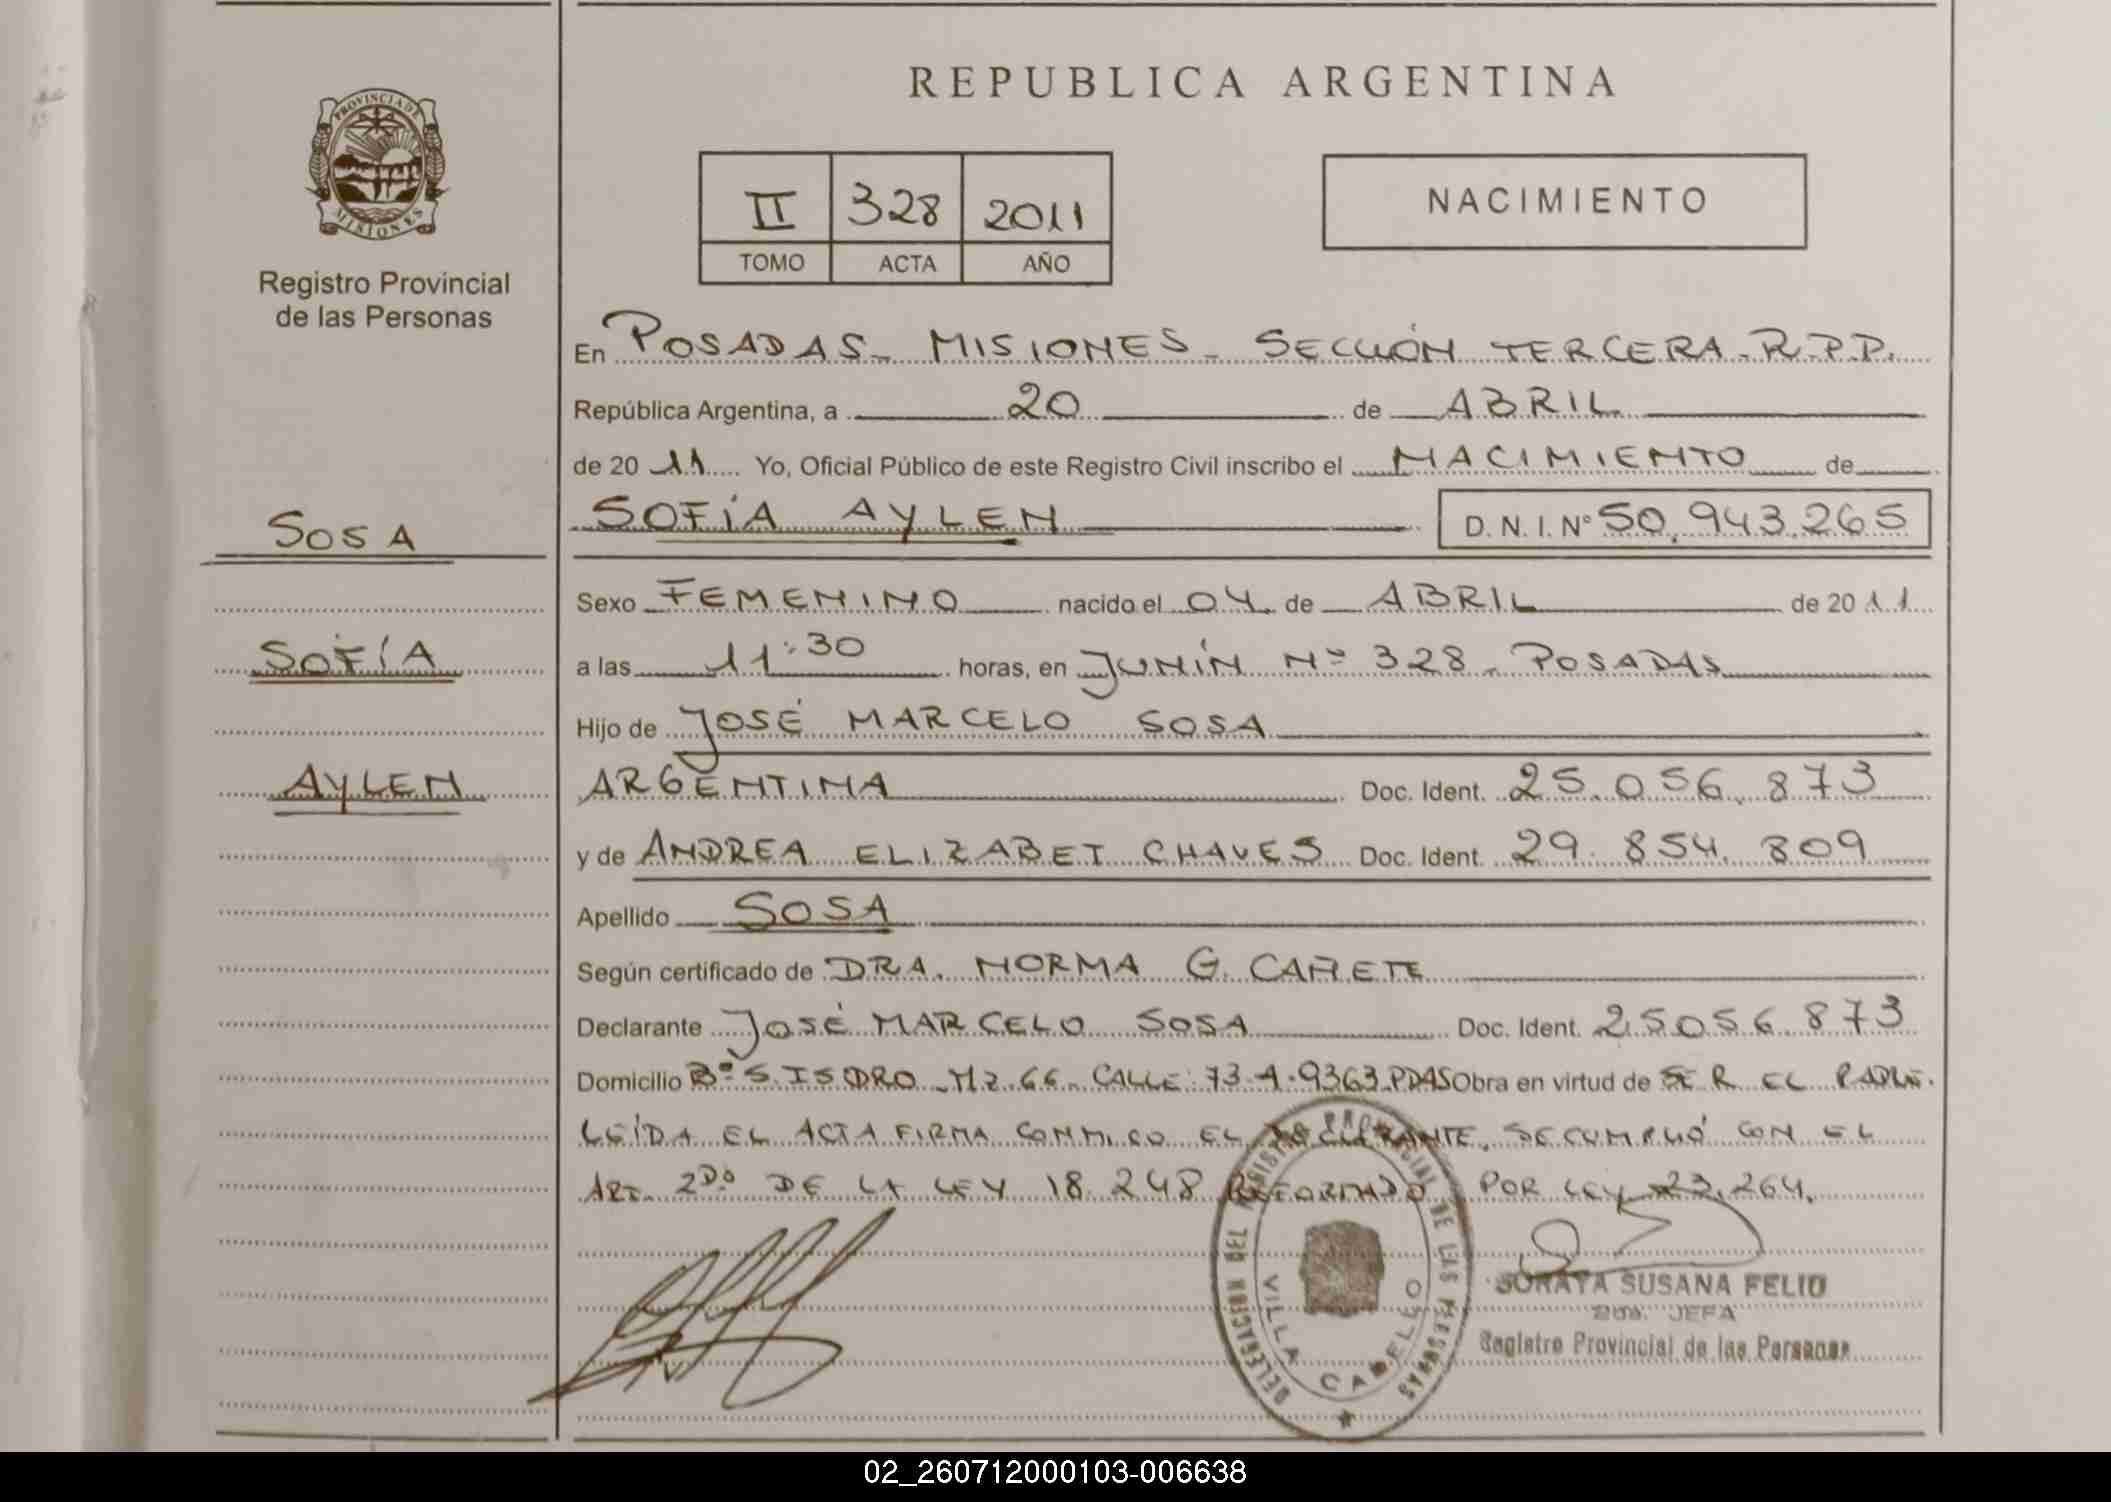 REPUBLICA ARGENTINA
PROVINCIA DE MISIONES
Registro Provincial
de las Personas
II 328 2011
TOMO ACTA AÑO
NACIMIENTO
En POSADAS - MISIONES - SECCIÓN TERCERA - R.P.P.
República Argentina, a 20 de ABRIL
de 20 11 Yo, Oficial Público de este Registro Civil inscribo el NACIMIENTO de
SOSA
SOFÍA AYLEN D. N. I. Nº 50.943.265
Sexo FEMENINO nacido el 04 de ABRIL de 20 11
SOFÍA
a las 11:30 horas, en JUNÍN Nº 328 - POSADAS
Hijo de JOSÉ MARCELO SOSA
AYLEN
ARGENTINA Doc. Ident. 25.056.873
y de ANDREA ELIZABET CHAVES Doc. Ident. 29.854.809
Apellido SOSA
Según certificado de DRA. NORMA G. CAÑETE
Declarante JOSÉ MARCELO SOSA Doc. Ident. 25.056.873
Domicilio Bº S. ISIDRO - MZ 66 - CALLE 73-A-9363 PDAS Obra en virtud de SER EL PADRE.
LEÍDA EL ACTA FIRMA CONMIGO EL DECLARANTE. SE CUMPLIÓ CON EL
ART. 2DO DE LA LEY 18.248 REFORMADO POR LEY 23.264.
DELEGACION DEL REGISTRO PROVINCIAL DE LAS PERSONAS
VILLA CABELLO
SORAYA SUSANA FELIO
2da. JEFA
Registro Provincial de las Personas
02_260712000103-006638